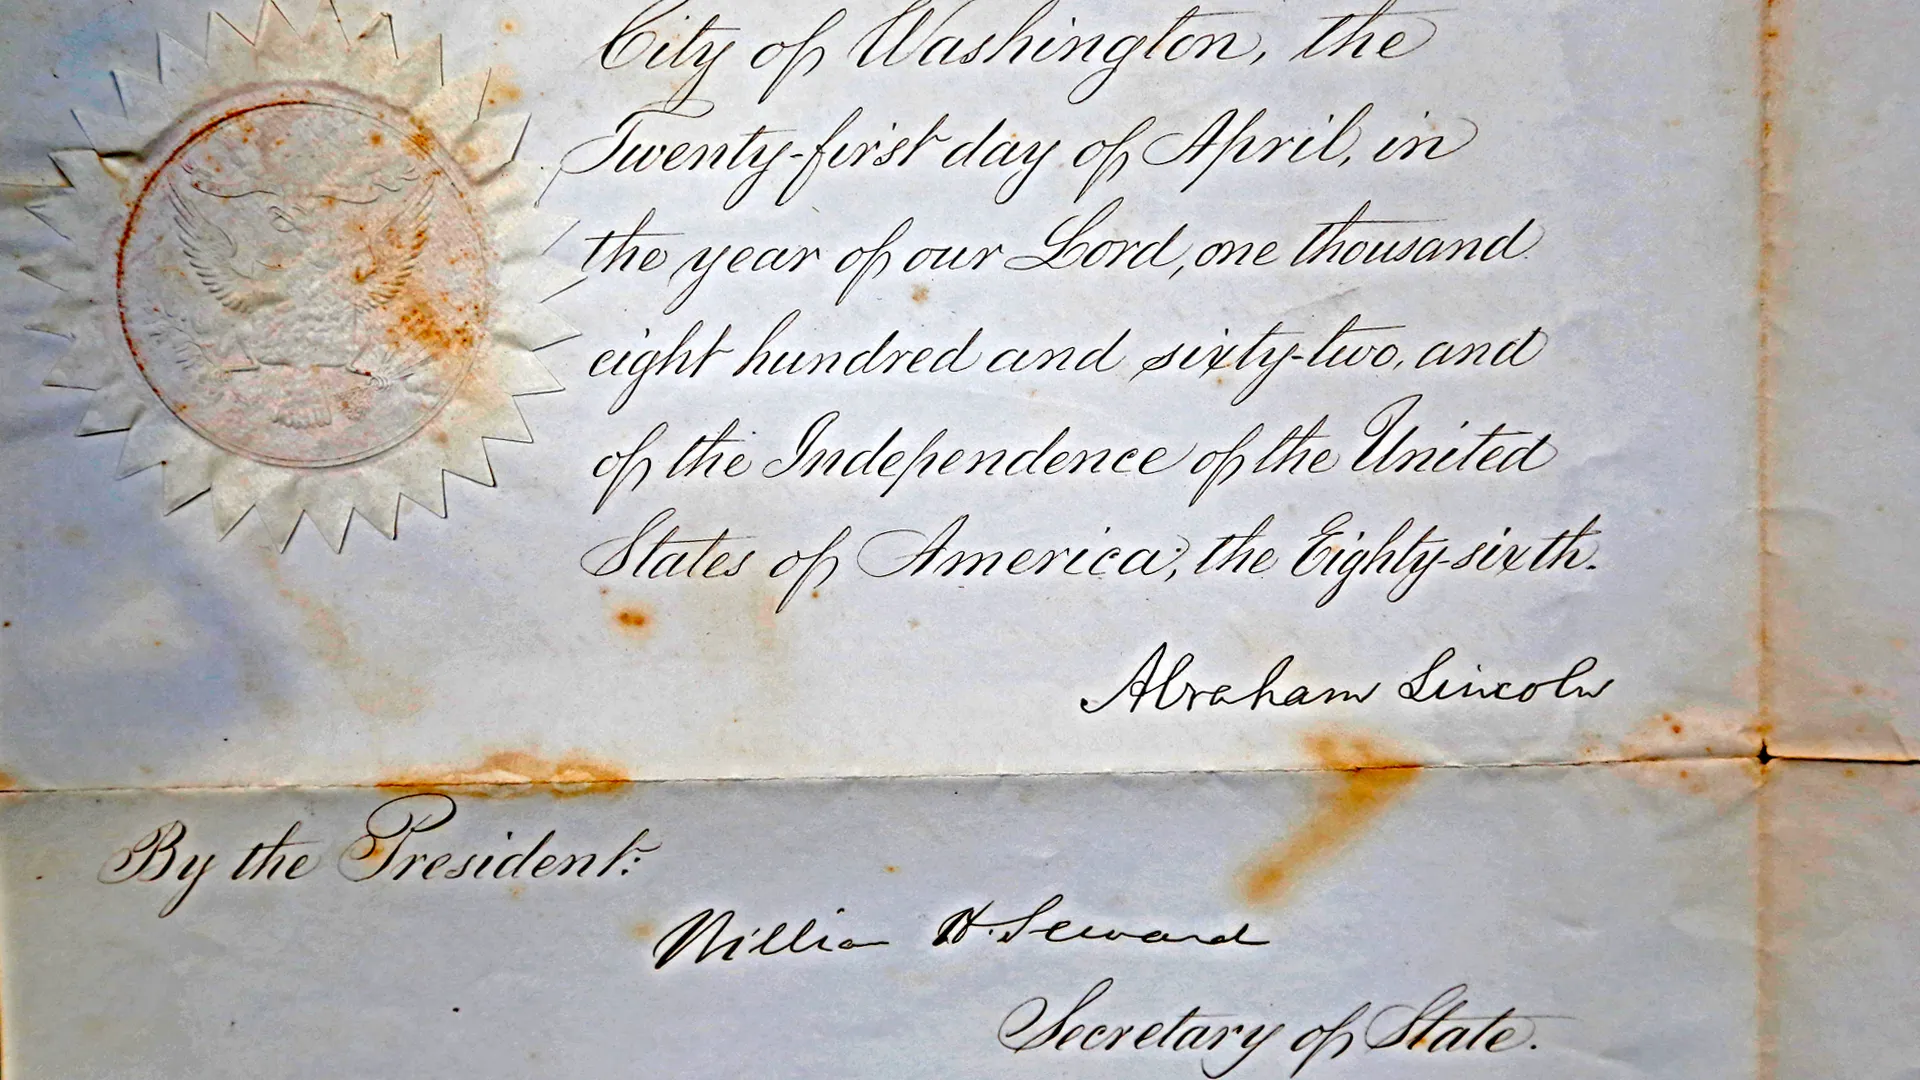 City of Washington, the
Twenty-first day of April, in
the year of our Lord, one thousand
eight hundred and sixty-two, and
of the Independence of the United
States of America, the Eighty-sixth.
Abraham Lincoln
By the President:
William H. Seward
Secretary of State.